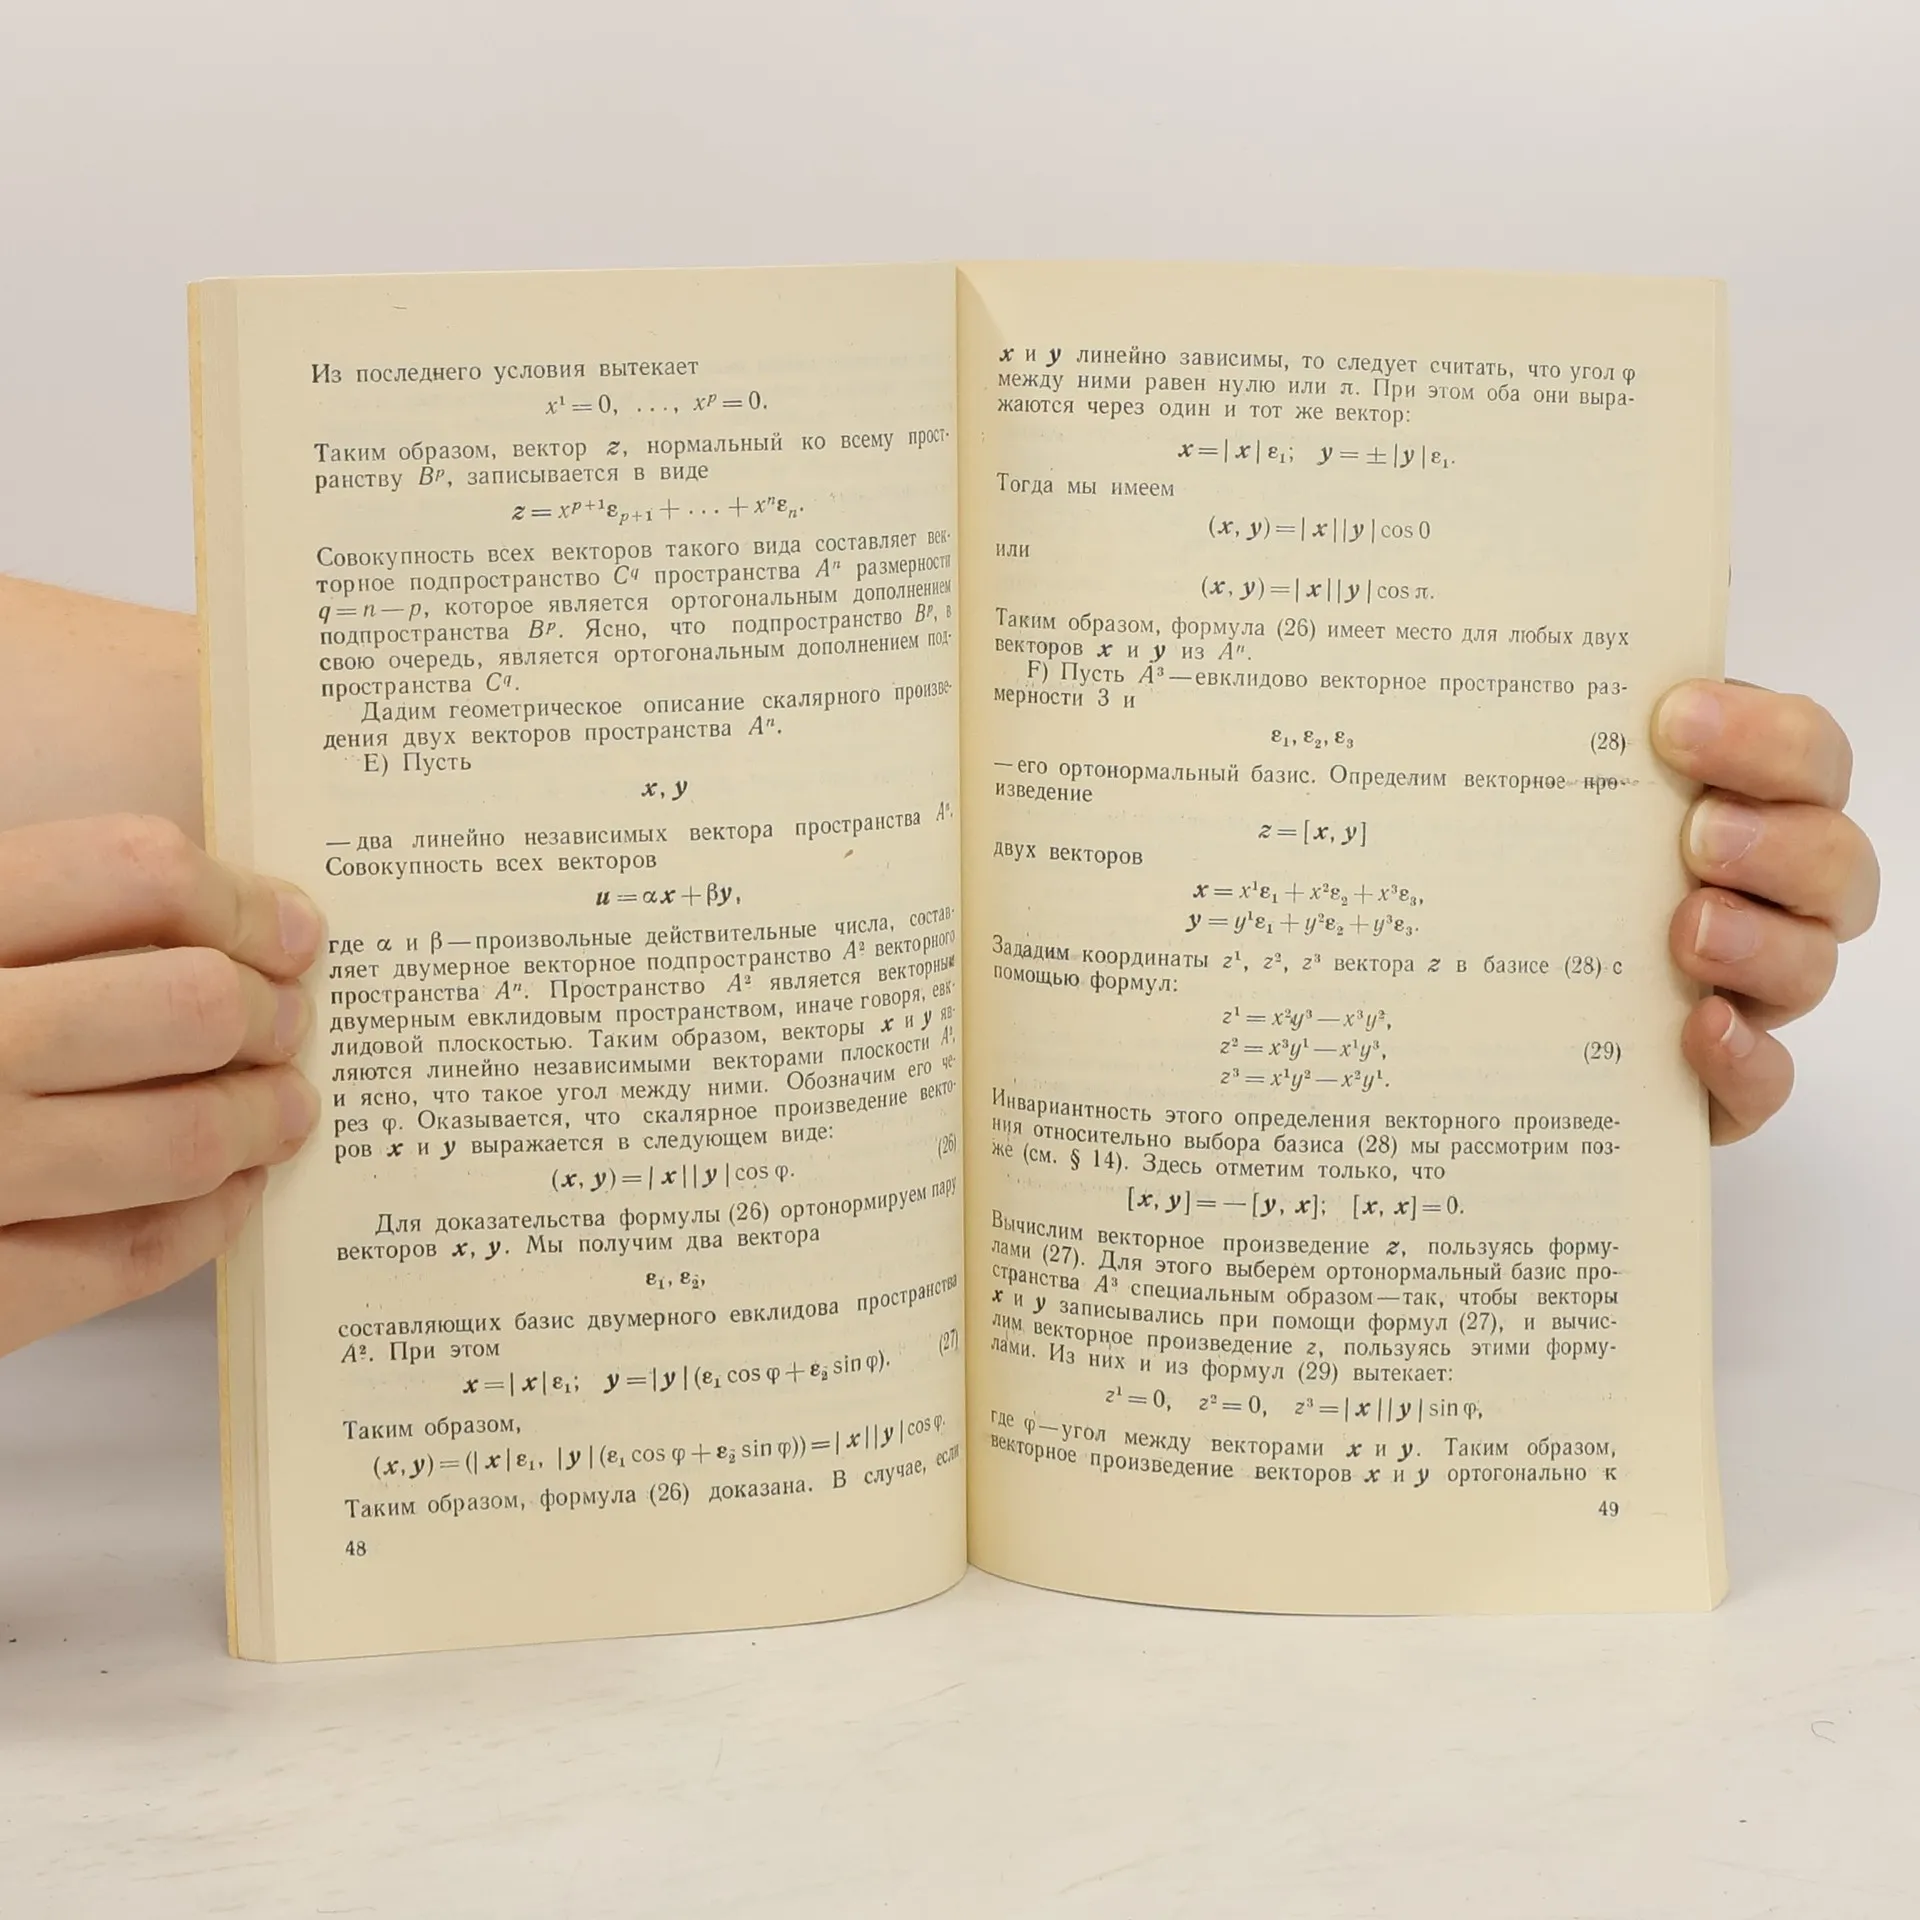 Из последнего условия вытекает
x¹ = 0, ..., xᵖ = 0.
Таким образом, вектор z, нормальный ко всему прост-
ранству Bᵖ, записывается в виде
z = xᵖ⁺¹εₚ₊₁ + ... + xⁿεₙ.
Совокупность всех векторов такого вида составляет век-
торное подпространство C^q пространства Aⁿ размерности
q = n — p, которое является ортогональным дополнением
подпространства Bᵖ. Ясно, что подпространство Bᵖ, в
свою очередь, является ортогональным дополнением под-
пространства C^q.
Дадим геометрическое описание скалярного произве-
дения двух векторов пространства Aⁿ.
E) Пусть
x, y
— два линейно независимых вектора пространства Aⁿ.
Совокупность всех векторов
u = αx + βy,
где α и β — произвольные действительные числа, состав-
ляет двумерное векторное подпространство A² векторного
пространства Aⁿ. Пространство A² является векторным
двумерным евклидовым пространством, иначе говоря, евк-
лидовой плоскостью. Таким образом, векторы x и y яв-
ляются линейно независимыми векторами плоскости A²,
и ясно, что такое угол между ними. Обозначим его че-
рез φ. Оказывается, что скалярное произведение векто-
ров x и y выражается в следующем виде:
(x, y) = |x||y| cos φ. (26)
Для доказательства формулы (26) ортонормируем пару
векторов x, y. Мы получим два вектора
ε₁, ε₂,
составляющих базис двумерного евклидова пространства
A². При этом
x = |x| ε₁; y = |y| (ε₁ cos φ + ε₂ sin φ). (27)
Таким образом,
(x, y) = (|x| ε₁, |y| (ε₁ cos φ + ε₂ sin φ)) = |x||y| cos φ.
Таким образом, формула (26) доказана. В случае, если
48
x и y линейно зависимы, то следует считать, что угол φ
между ними равен нулю или π. При этом оба они выра-
жаются через один и тот же вектор:
x = |x| ε₁; y = ± |y| ε₁.
Тогда мы имеем
(x, y) = |x||y| cos 0
или
(x, y) = |x||y| cos π.
Таким образом, формула (26) имеет место для любых двух
векторов x и y из Aⁿ.
F) Пусть A³ — евклидово векторное пространство раз-
мерности 3 и
ε₁, ε₂, ε₃ (28)
— его ортонормальный базис. Определим векторное про-
изведение
z = [x, y]
двух векторов
x = x¹ε₁ + x²ε₂ + x³ε₃,
y = y¹ε₁ + y²ε₂ + y³ε₃.
Зададим координаты z¹, z², z³ вектора z в базисе (28) с
помощью формул:
z¹ = x²y³ — x³y²,
z² = x³y¹ — x¹y³, (29)
z³ = x¹y² — x²y¹.
Инвариантность этого определения векторного произведе-
ния относительно выбора базиса (28) мы рассмотрим поз-
же (см. § 14). Здесь отметим только, что
[x, y] = — [y, x]; [x, x] = 0.
Вычислим векторное произведение z, пользуясь форму-
лами (27). Для этого выберем ортонормальный базис про-
странства A³ специальным образом — так, чтобы векторы
x и y записывались при помощи формул (27), и вычис-
лим векторное произведение z, пользуясь этими форму-
лами. Из них и из формул (29) вытекает:
z¹ = 0, z² = 0, z³ = |x||y| sin φ,
где φ — угол между векторами x и y. Таким образом,
векторное произведение векторов x и y ортогонально к
49